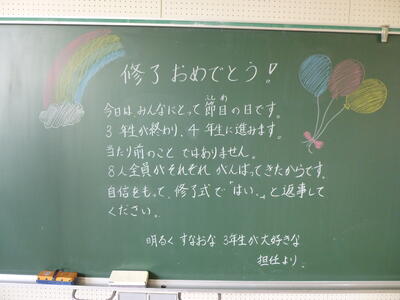 修了おめでとう!
今日は、みんなにとって節目の日です。
ふしめ
3年生が終わり、4年生に進みます。
当たり前のことではありません。
8人全員がそれぞれがんばってきたからです。
自信をもって、修了式で「はい。」と返事して
ください。
明るくすなおな3年生が大好きな
担任より.